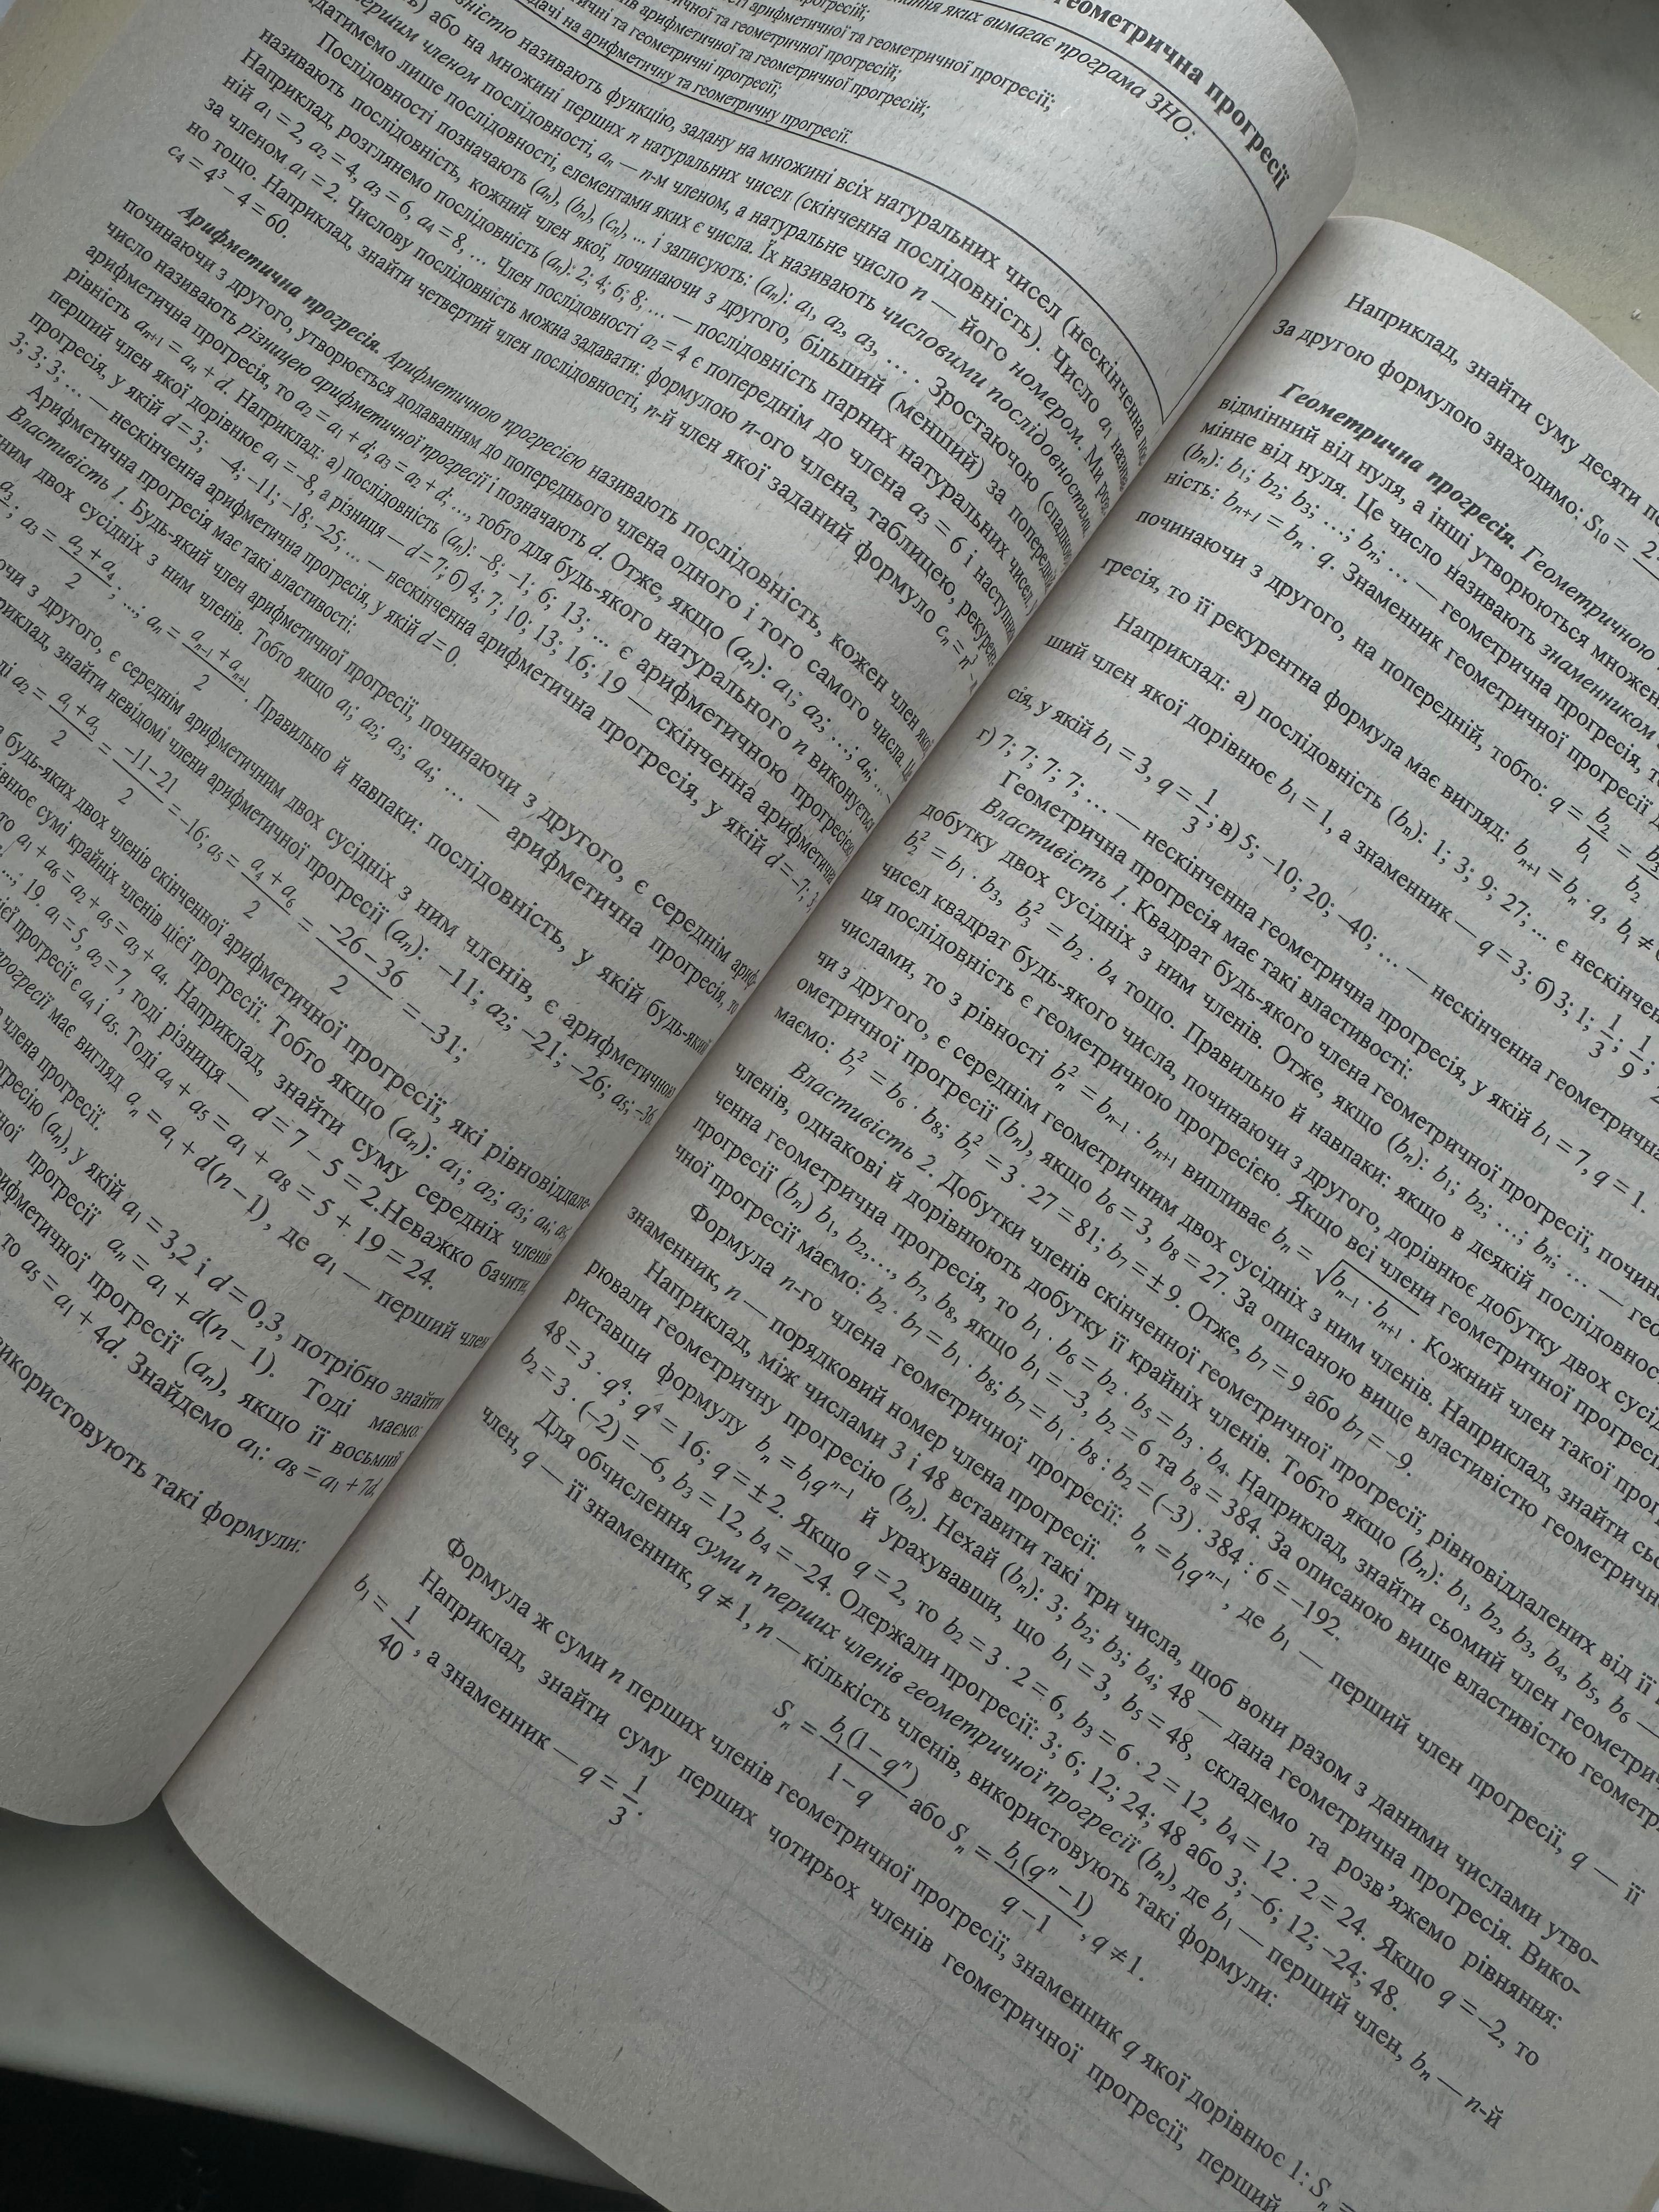 геометрична прогресії
яких вимагає програма ЗНО:
арифметичної та геометричної прогресії;
арифметичної та геометричної прогресій;
та геометричні прогресії;
на арифметичну та геометричну прогресії.
називають функцію, задану на множині всіх натуральних чисел (нескінченна
або на множині перших n натуральних чисел (скінченна послідовність). Число a₁
першим членом послідовності, aₙ — n-м членом, а натуральне число n — його номером. Ми
лише послідовності, елементами яких є числа. Їх називають числовими послідовностями
Послідовності позначають (aₙ), (bₙ), (cₙ), ... і записують: (aₙ): a₁, a₂, a₃, ... . Зростаючою (спадною
називають послідовність, кожний член якої, починаючи з другого, більший (менший) за попередній
Наприклад, розглянемо послідовність (aₙ): 2; 4; 6; 8; ... — послідовність парних натуральних чисел.
ній a₁ = 2, a₂ = 4, a₃ = 6, a₄ = 8, ... Член послідовності a₂ = 4 є попереднім до члена a₃ = 6 і наступним
за членом a₁ = 2. Числову послідовність можна задавати: формулою n-ого члена, таблицею,
но тощо. Наприклад, знайти четвертий член послідовності, n-й член якої заданий формулою cₙ = n³
c₄ = 4³ – 4 = 60.
Арифметична прогресія. Арифметичною прогресією називають послідовність, кожен член якої
починаючи з другого, утворюється додаванням до попереднього члена одного і того самого числа. Це
число називають різницею арифметичної прогресії і позначають d. Отже, якщо (aₙ): a₁; a₂; ...; aₙ; ... –
арифметична прогресія, то a₂ = a₁ + d; a₃ = a₂ + d; ..., тобто для будь-якого натурального n виконується
рівність aₙ₊₁ = aₙ + d. Наприклад: а) послідовність (aₙ): –8; –1; 6; 13; ... є арифметичною прогресією
перший член якої дорівнює a₁ = –8, а різниця — d = 7; б) 4; 7; 10; 13; 16; 19 — скінченна арифметична
прогресія, у якій d = 3; –4; –11; –18; –25; ... — нескінченна арифметична прогресія, у якій d = –7;
3; 3; 3; ... — нескінченна арифметична прогресія, у якій d = 0.
Арифметична прогресія має такі властивості:
Властивість 1. Будь-який член арифметичної прогресії, починаючи з другого, є середнім
двох сусідніх з ним членів. Тобто якщо a₁; a₂; a₃; a₄; ... — арифметична прогресія, то
; a₃ = (a₂ + a₄)/2; ...; aₙ = (aₙ₋₁ + aₙ₊₁)/2. Правильно й навпаки: послідовність, у якій будь-який
з другого, є середнім арифметичним двох сусідніх з ним членів, є арифметичною
знайти невідомі члени арифметичної прогресії (aₙ): –11; a₂; –21; –26; a₅; –36.
a₂ = (a₁ + a₃)/2 = (–11–21)/2 = –16; a₅ = (a₄ + a₆)/2 = (–26–36)/2 = –31;
будь-яких двох членів скінченної арифметичної прогресії, які рівновіддале-
сумі крайніх членів цієї прогресії. Тобто якщо (aₙ): a₁; a₂; a₃; a₄; a₅,
a₁ + a₆ = a₂ + a₅ = a₃ + a₄. Наприклад, знайти суму середніх членів
...; 19. a₁ = 5, a₂ = 7, тоді різниця — d = 7 – 5 = 2.Неважко бачити,
прогресії є a₄ і a₅. Тоді a₄ + a₅ = a₁ + a₈ = 5 + 19 = 24.
прогресії має вигляд aₙ = a₁ + d(n–1), де a₁ — перший член
члена прогресії.
(aₙ), у якій a₁ = 3,2 і d = 0,3, потрібно знайти
прогресії aₙ = a₁ + d(n – 1). Тоді маємо:
прогресії (aₙ), якщо її восьмий
то a₅ = a₁ + 4d. Знайдемо a₁: a₈ = a₁ + 7d,
використовують такі формули:
Наприклад, знайти суму десяти
За другою формулою знаходимо: S₁₀ =
Геометрична прогресія. Геометричною
відмінний від нуля, а інші утворюються
мінне від нуля. Це число називають знаменником
(bₙ): b₁; b₂; b₃; ...; bₙ; ... — геометрична прогресія,
ність: bₙ₊₁ = bₙ · q. Знаменник геометричної прогресії
починаючи з другого, на попередній, тобто: q = b₂/b₁ =
гресія, то її рекурентна формула має вигляд: bₙ₊₁ = bₙ · q, b₁ ≠
Наприклад: а) послідовність (bₙ): 1; 3; 9; 27; ... є
ший член якої дорівнює b₁ = 1, а знаменник — q = 3; б) 3; 1; 1/3; 1/9;
сія, у якій b₁ = 3, q = 1/3; в) 5; –10; 20; –40; ... — нескінченна геометрична
г) 7; 7; 7; 7; ... — нескінченна геометрична прогресія, у якій b₁ = 7, q = 1.
Геометрична прогресія має такі властивості:
Властивість 1. Квадрат будь-якого члена геометричної прогресії,
добутку двох сусідніх з ним членів. Отже, якщо (bₙ): b₁; b₂; ...; bₙ; ... —
b₂² = b₁ · b₃, b₃² = b₂ · b₄ тощо. Правильно й навпаки: якщо в деякій
чисел квадрат будь-якого числа, починаючи з другого, дорівнює добутку двох
ця послідовність є геометричною прогресією. Якщо всі члени геометричної прогресії
числами, то з рівності bₙ² = bₙ₋₁ · bₙ₊₁ випливає bₙ = √(bₙ₋₁ · bₙ₊₁). Кожний член такої
чи з другого, є середнім геометричним двох сусідніх з ним членів. Наприклад, знайти
ометричної прогресії (bₙ), якщо b₆ = 3, b₈ = 27. За описаною вище властивістю
маємо: b₇² = b₆ · b₈; b₇² = 3 · 27 = 81; b₇ = ± 9. Отже, b₇ = 9 або b₇ = –9.
Властивість 2. Добутки членів скінченної геометричної прогресії, рівновіддалених від її
членів, однакові й дорівнюють добутку її крайніх членів. Тобто якщо (bₙ): b₁, b₂, b₃, b₄, b₅, b₆ —
ченна геометрична прогресія, то b₁ · b₆ = b₂ · b₅ = b₃ · b₄. Наприклад, знайти сьомий член
прогресії (bₙ) b₁, b₂,..., b₇, b₈, якщо b₁ = –3, b₂ = 6 та b₈ = 384. За описаною вище властивістю
чної прогресії маємо: b₂ · b₇ = b₁ · b₈; b₇ = b₁ · b₈ : b₂ = (–3) · 384 : 6 = –192.
Формула n-го члена геометричної прогресії: bₙ = b₁qⁿ⁻¹, де b₁ — перший член прогресії, q — її
знаменник, n — порядковий номер члена прогресії.
Наприклад, між числами 3 і 48 вставити такі три числа, щоб вони разом з даними числами утво-
рювали геометричну прогресію (bₙ). Нехай (bₙ): 3; b₂; b₃; b₄; 48 — дана геометрична прогресія. Вико-
риставши формулу bₙ = b₁qⁿ⁻¹ й урахувавши, що b₁ = 3, b₅ = 48, складемо та розв’яжемо рівняння:
48 = 3 · q⁴; q⁴ = 16; q = ± 2. Якщо q = 2, то b₂ = 3 · 2 = 6, b₃ = 6 · 2 = 12, b₄ = 12 · 2 = 24. Якщо q = –2, то
b₂ = 3 · (–2) = –6, b₃ = 12, b₄ = –24. Одержали прогресії: 3; 6; 12; 24; 48 або 3; –6; 12; –24; 48.
Для обчислення суми n перших членів геометричної прогресії (bₙ), де b₁ — перший член, bₙ — n-й
член, q — її знаменник, q ≠ 1, n — кількість членів, використовують такі формули:
Sₙ = b₁(1–qⁿ)/(1–q) або Sₙ = b₁(qⁿ –1)/(q –1), q ≠ 1.
Формула ж суми n перших членів геометричної прогресії, знаменник q якої дорівнює 1: Sₙ =
Наприклад, знайти суму перших чотирьох членів геометричної прогресії, перший
b₁ = 1/40, а знаменник — q = 1/3.